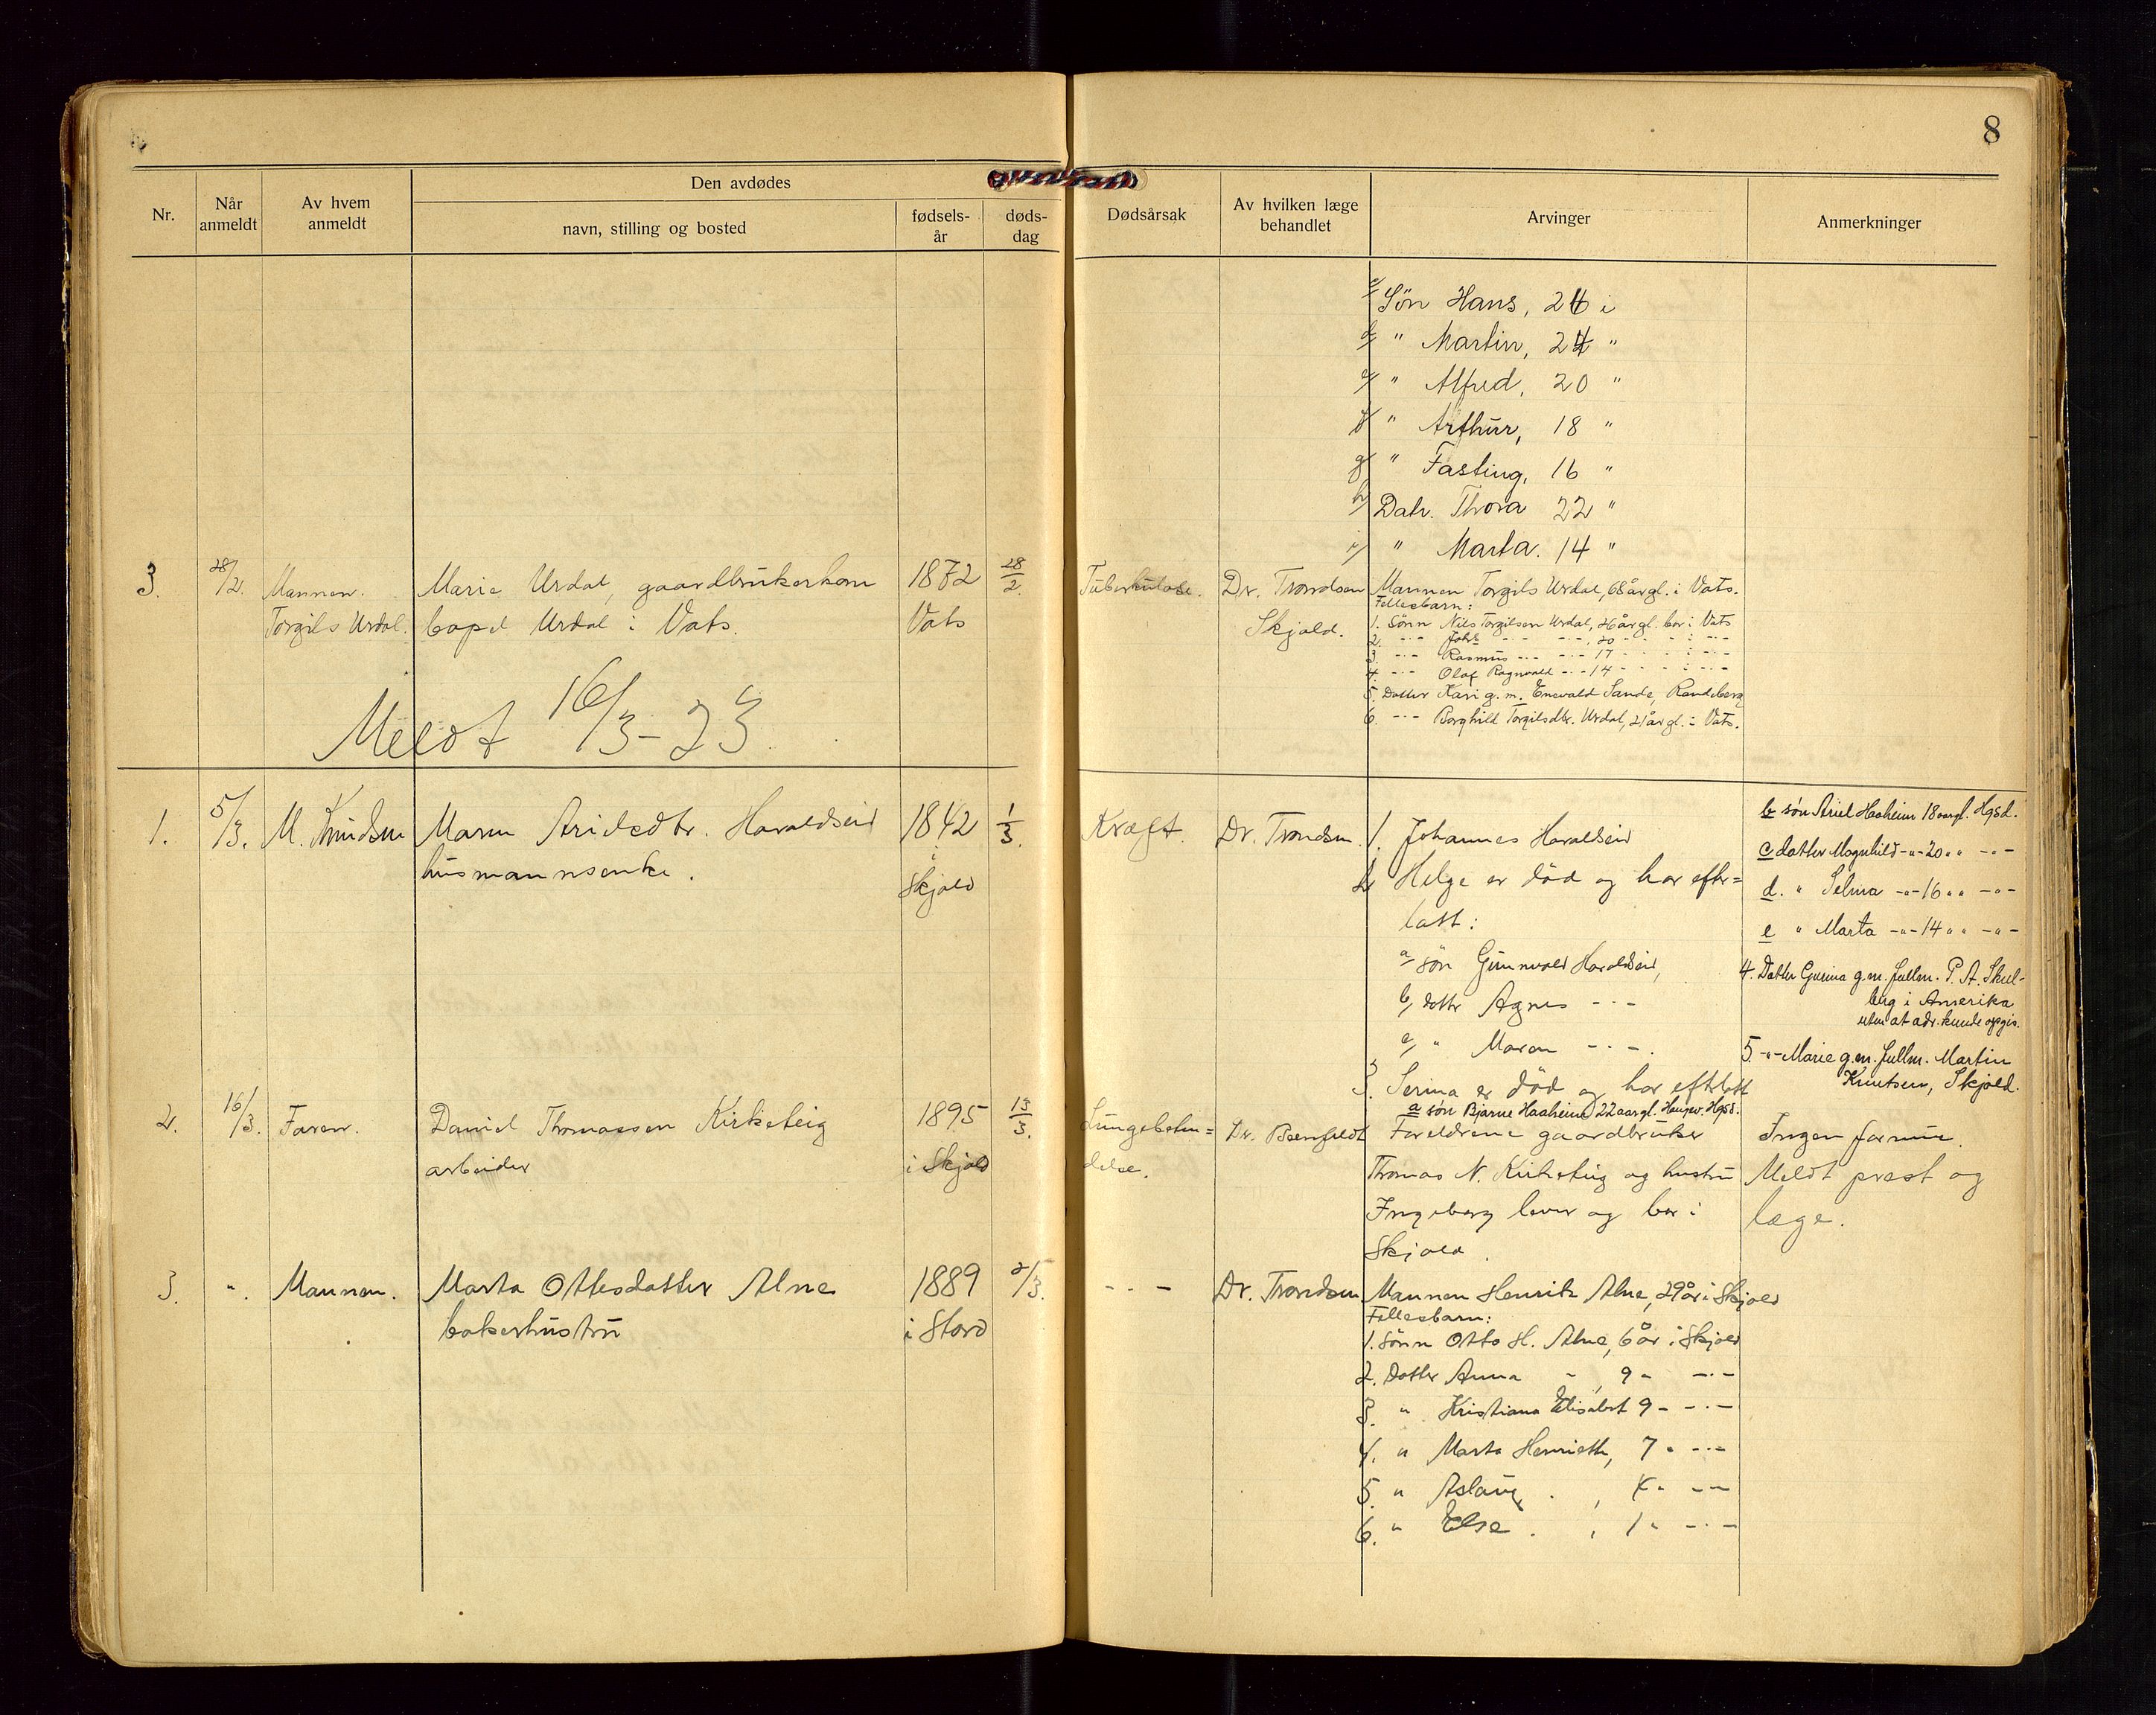 8
Nr.
Når anmeldt
Av hvem anmeldt
Den avdødes
navn, stilling og bosted
fødsels-år
døds-dag
Dødsårsak
Av hvilken læge behandlet
Arvinger
Anmerkninger
c/ Søn Hans, 26 i
d/ " Martin, 24 "
e/ " Alfred, 20 "
f/ " Arthur, 18 "
g/ " Fasting, 16 "
h/ Datr. Thora 22 "
i/ " Marta. 14 "
3. 28/2. Mannen. Marie Urdal, gaardbrukerkone 1872 28/2. Tuberkulose. Dr. Trondsen
Torgils Urdal. bopel Urdal i Vats. Vats Skjold.
Mannen Torgils Urdal, 68 år gl. i Vats.
Fellesbarn:
1. Sønn Nils Torgilsen Urdal, 26 år gl. bor i Vats
2. -"- Johs -"- -"-, 20 - - - i -"-
3. -"- Rasmus -"- -"- 17 - - - i -"-
4. -"- Olaf Ragnvald -"- 14 - - - i -"-
5. Datter Kari g.m. Enevald Sande, Randeberg
6. -"- Borghild Torgilsdtr. Urdal, 21 år gl. i Vats.
Meldt 16/3-23.
1. 5/3. M. Knudsen Maren Arildsdtr. Haraldseid 1842 1/3. Kræft. Dr. Trondsen.
husmannsenke. i Skjold
1. Johannes Haraldseid
2. Helge er död og har efter=
latt:
a søn Gunnvald Haraldseid,
b, datter Agnes -"-
c, " Maren -"-.
3. Serina er död og har efterlatt
a søn Bjarne Haaheim 22 aar gl. Haugesv. Hgsd.
b søn Ariel Haaheim 18 aar gl. Hgsd.
c datter Magnhild -"- 20 " " -"-
d. " Selma -"- 16 " " -"-
e " Marta -"- 14 " " -"-
4. Datter Gurina g.m. fullm. P. A. Skul-
berg i Amerika
uten at adr. kunde opgis.
5. -"- Marie g.m. fullm. Martin
Knutsen, Skjold.
2. 16/3. Faren. Daniel Thomassen Kirketeig 1895 13/3. Lungebeten= Dr. Beenfeldt
arbeider i Skjold delse.
Foreldrene gaardbruker
Thomas N. Kirketeig og hustru
Ingeborg lever og bor i
Skjold.
Ingen formue.
Meldt prest og
læge.
3. ". Mannen. Marta Ottesdatter Alne 1889 2/3. -"- Dr. Trondsen.
bakerhustru i Stord
Mannen Henrik Alne, 29 år i Skjold
Fellesbarn:
1. Sönn Otto H. Alne, 6 år i Skjold
2. Datter Anna -, 9 - -"-
3. " Kristiana Elisabet 9 - -"-
4. " Marta Henriette, 7 " -"-
5. " Aslaug. , 4 " -"-
6. " Else. , 1 " -"-